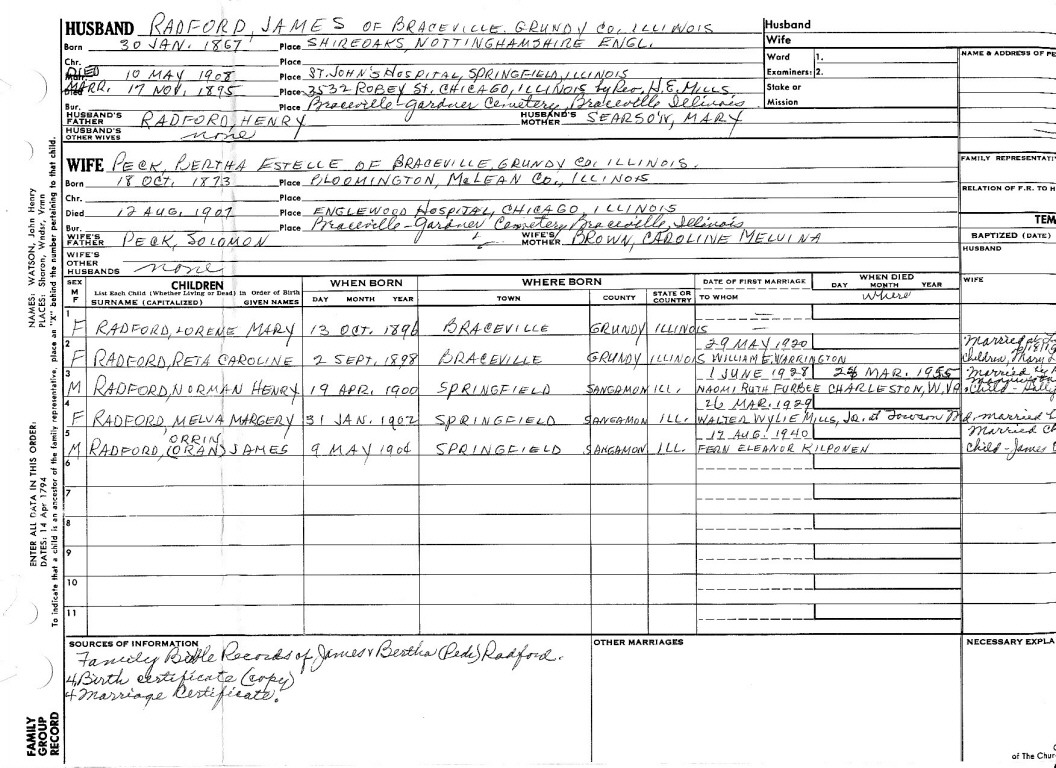 HUSBAND RADFORD, JAMES OF BRACEVILLE, GRUNDY CO, ILLINOIS
Born 30 JAN. 1867 Place SHIREOAKS, NOTTINGHAMSHIRE ENGL.
Chr. Place
DIED 10 MAY 1908 Place ST. JOHN'S HOSPITAL, SPRINGFIELD, ILLINOIS
MARR. 17 NOV, 1895 Place 3532 ROBEY ST. CHICAGO, ILLINOIS by Rev. H.E. MILLS
Bur. Place Braceville-Gardner Cemetery, Braceville Illinois
HUSBAND'S FATHER RADFORD, HENRY HUSBAND'S MOTHER SEARSON, MARY
HUSBAND'S OTHER WIVES none
Husband
Wife
Ward 1.
Examiners: 2.
Stake or
Mission
NAME & ADDRESS OF PE
WIFE PECK, BERTHA ESTELLE OF BRACEVILLE, GRUNDY CO. ILLINOIS.
Born 18 OCT. 1873 Place BLOOMINGTON, McLEAN CO., ILLINOIS
Chr. Place
Died 12 AUG, 1907 Place ENGLEWOOD HOSPITAL, CHICAGO ILLINOIS
Bur. Place Braceville-Gardner Cemetery Braceville, Illinois
WIFE'S FATHER PECK, SOLOMON WIFE'S MOTHER BROWN, CAROLINE MELVINA
WIFE'S OTHER HUSBANDS none
FAMILY REPRESENTATI
RELATION OF F.R. TO H
TEM
BAPTIZED (DATE)
HUSBAND
WIFE
SEX M F CHILDREN WHEN BORN WHERE BORN DATE OF FIRST MARRIAGE WHEN DIED
List Each Child (Whether Living or Dead) in Order of Birth DAY MONTH YEAR
SURNAME (CAPITALIZED) GIVEN NAMES DAY MONTH YEAR TOWN COUNTY STATE OR COUNTRY TO WHOM where
1 F RADFORD, LORENE MARY 13 OCT. 1896 BRACEVILLE GRUNDY ILLINOIS
29 MAY 1920
2 F RADFORD, RETA CAROLINE 2 SEPT. 1898 BRACEVILLE GRUNDY ILLINOIS WILLIAM E. WARRINGTON
1 JUNE 1928 MAR. 1955
3 M RADFORD, NORMAN HENRY 19 APR. 1900 SPRINGFIELD SANGAMON ILL. NAOMI RUTH FURBEE CHARLESTON, W.VA.
26 MAR. 1929
4 F RADFORD, MELVA MARGERY 31 JAN. 1902 SPRINGFIELD SANGAMON ILL. WALTER WYLIE MILLS, Jr. at Towson
17 AUG. 1940
ORRIN
5 M RADFORD, (ORAN) JAMES 9 MAY 1904 SPRINGFIELD SANGAMON ILL. FERN ELEANOR KILPONEN
married
children, Mary
married
child
married
Married Ch
child - James
6
7
8
9
10
11
SOURCES OF INFORMATION
OTHER MARRIAGES
NECESSARY EXPLA
Family Bible Records of James & Bertha (Peck) Radford.
4 Birth certificate (copy)
4 Marriage Certificate.
of The Chur
NAMES: WATSON, John Henry
PLACES: Sharon, Wndsr, Vrmn
ENTER ALL DATA IN THIS ORDER:
DATES: 14 Apr 1794
To indicate that a child is an ancestor of the family representative, place an "X" behind the number pertaining to that child.
FAMILY
GROUP
RECORD